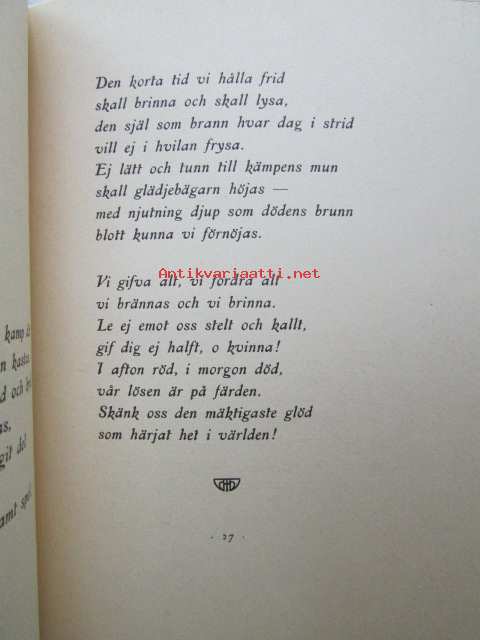 Den korta tid vi hålla frid
skall brinna och skall lysa,
den själ som brann hvar dag i strid
vill ej i hvilan frysa.
Ej lätt och tunn till kämpens mun
skall glädjebägarn höjas —
med njutning djup som dödens brunn
blott kunna vi förnöjas.
Antikvariaatti.net
Vi gifva allt, vi fordra allt
vi brännas och vi brinna.
Le ej emot oss stelt och kallt,
gif dig ej halft, o kvinna!
I afton röd, i morgon död,
vår lösen är på färden.
Skänk oss den mäktigaste glöd
som härjat het i världen!
· 27 ·
kamp
kasta
d och
git del
amt